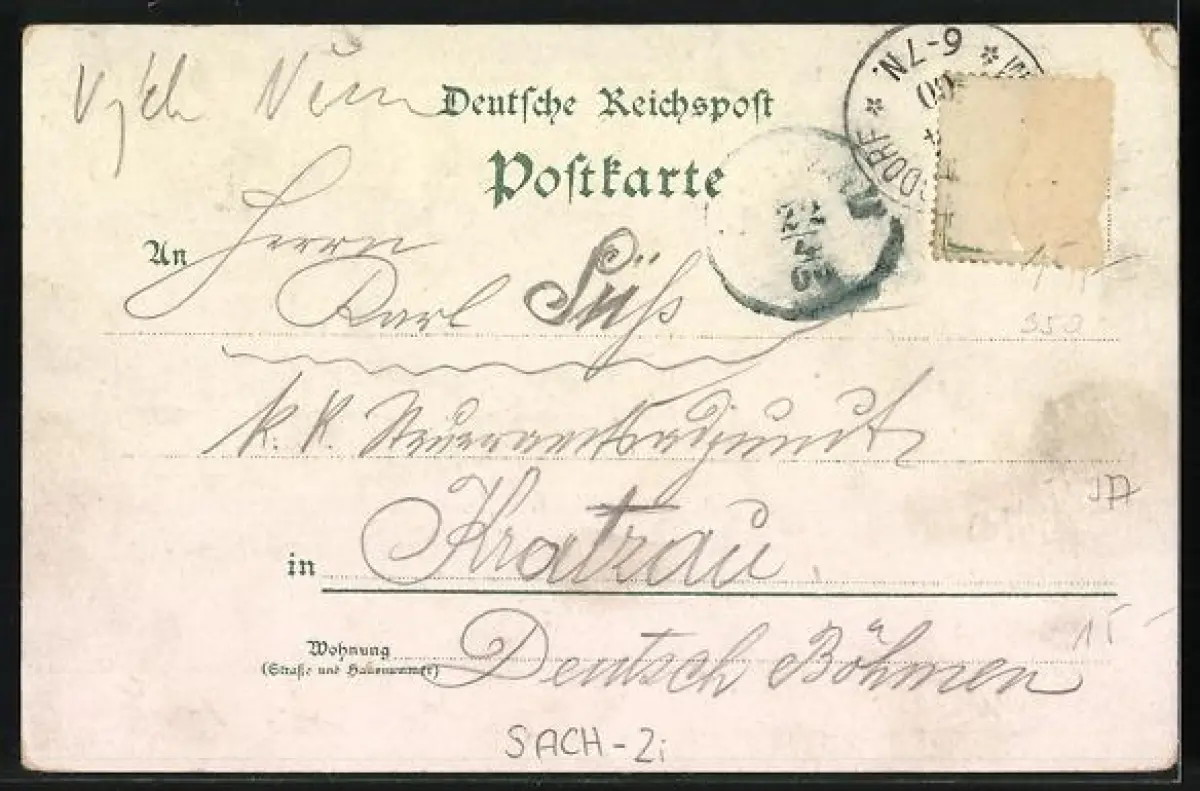 Deutsche Reichspost
Postkarte
6-7N.
00
DORF
22
4
An Herrn
Karl Süß
k. k. Steueramtsadjunct
in Kratzau
Wohnung
(Straße und Hausnummer)
Deutsch Böhmen
350
15 -
SACH-2i